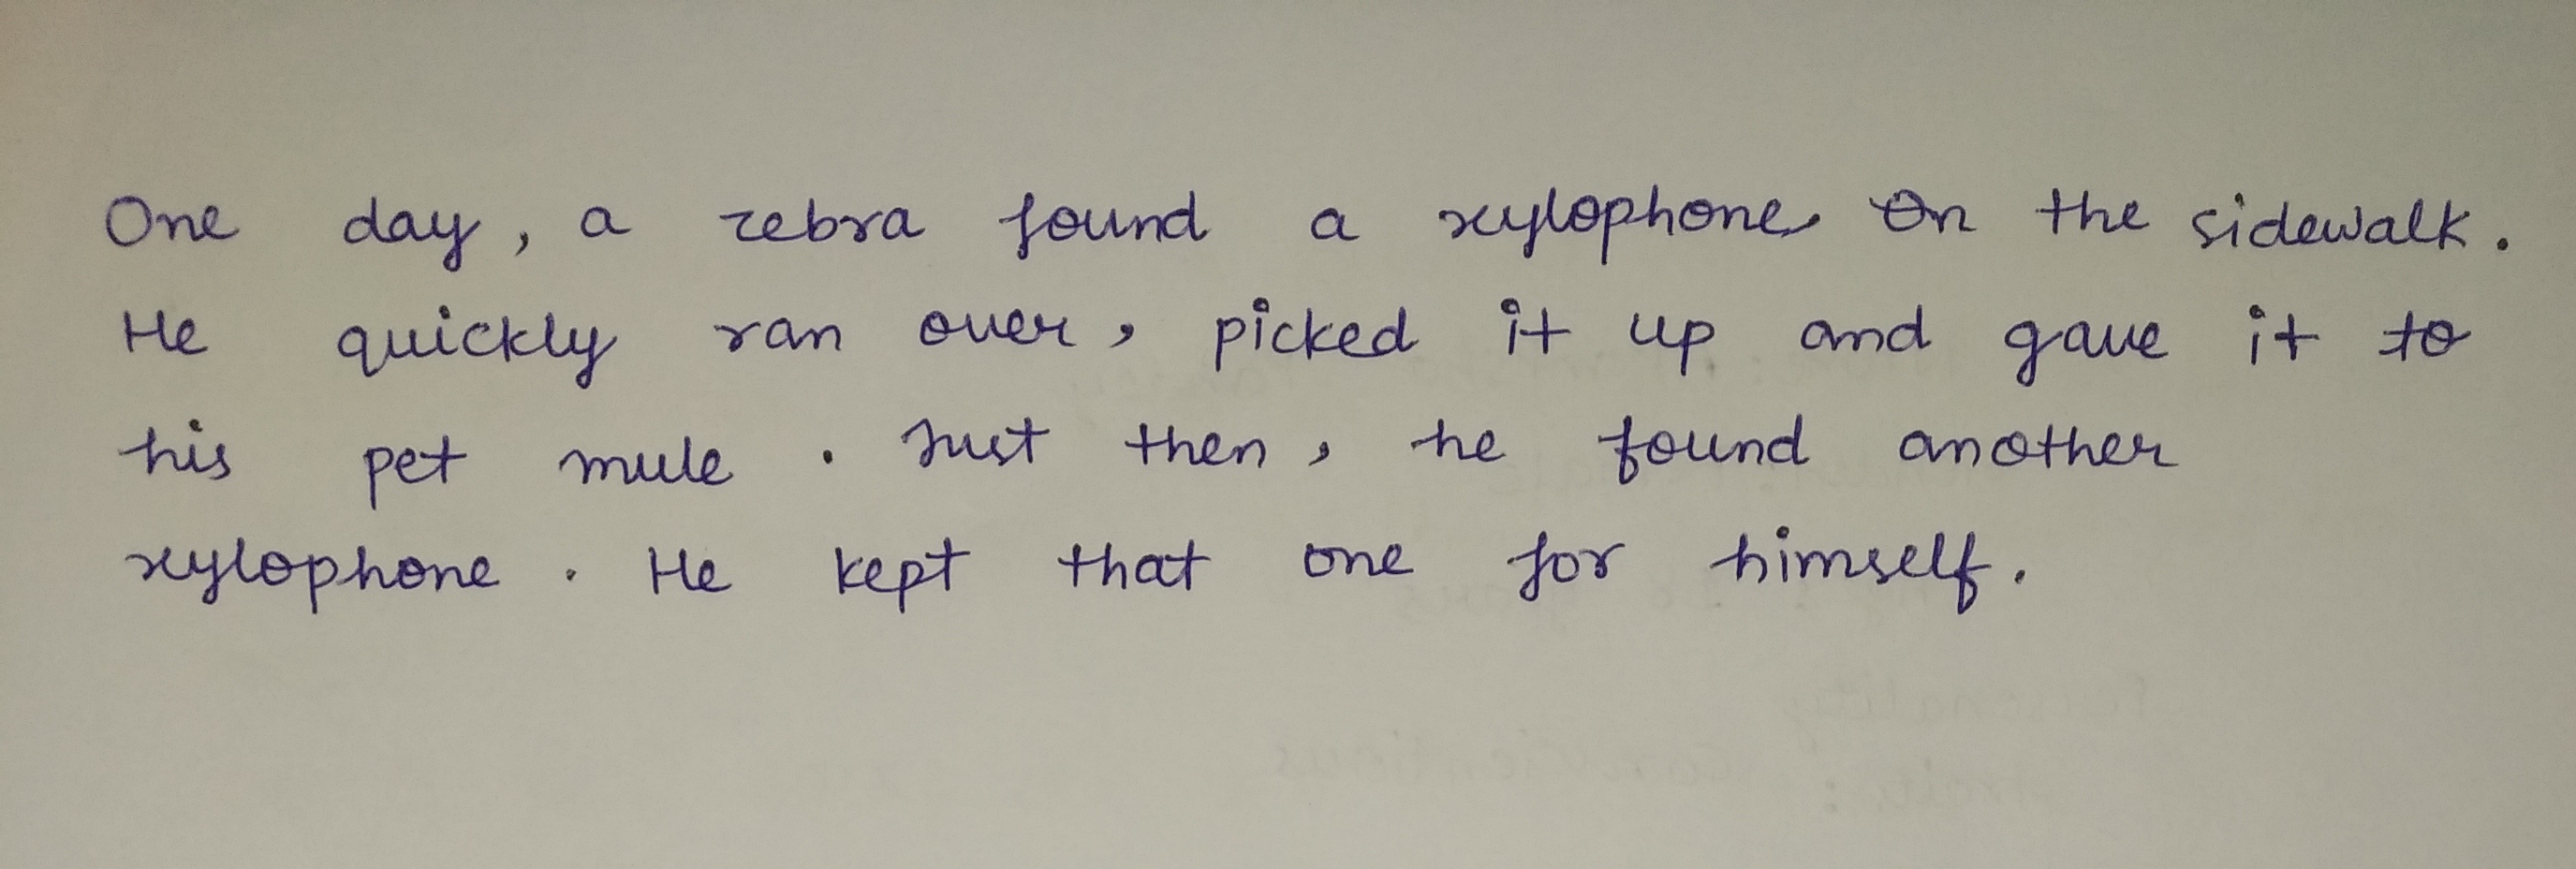 One day, a zebra found a xylophone on the sidewalk.
He quickly ran over, picked it up and gave it to
his pet mule. Just then, he found another
xylophone. He kept that one for himself.